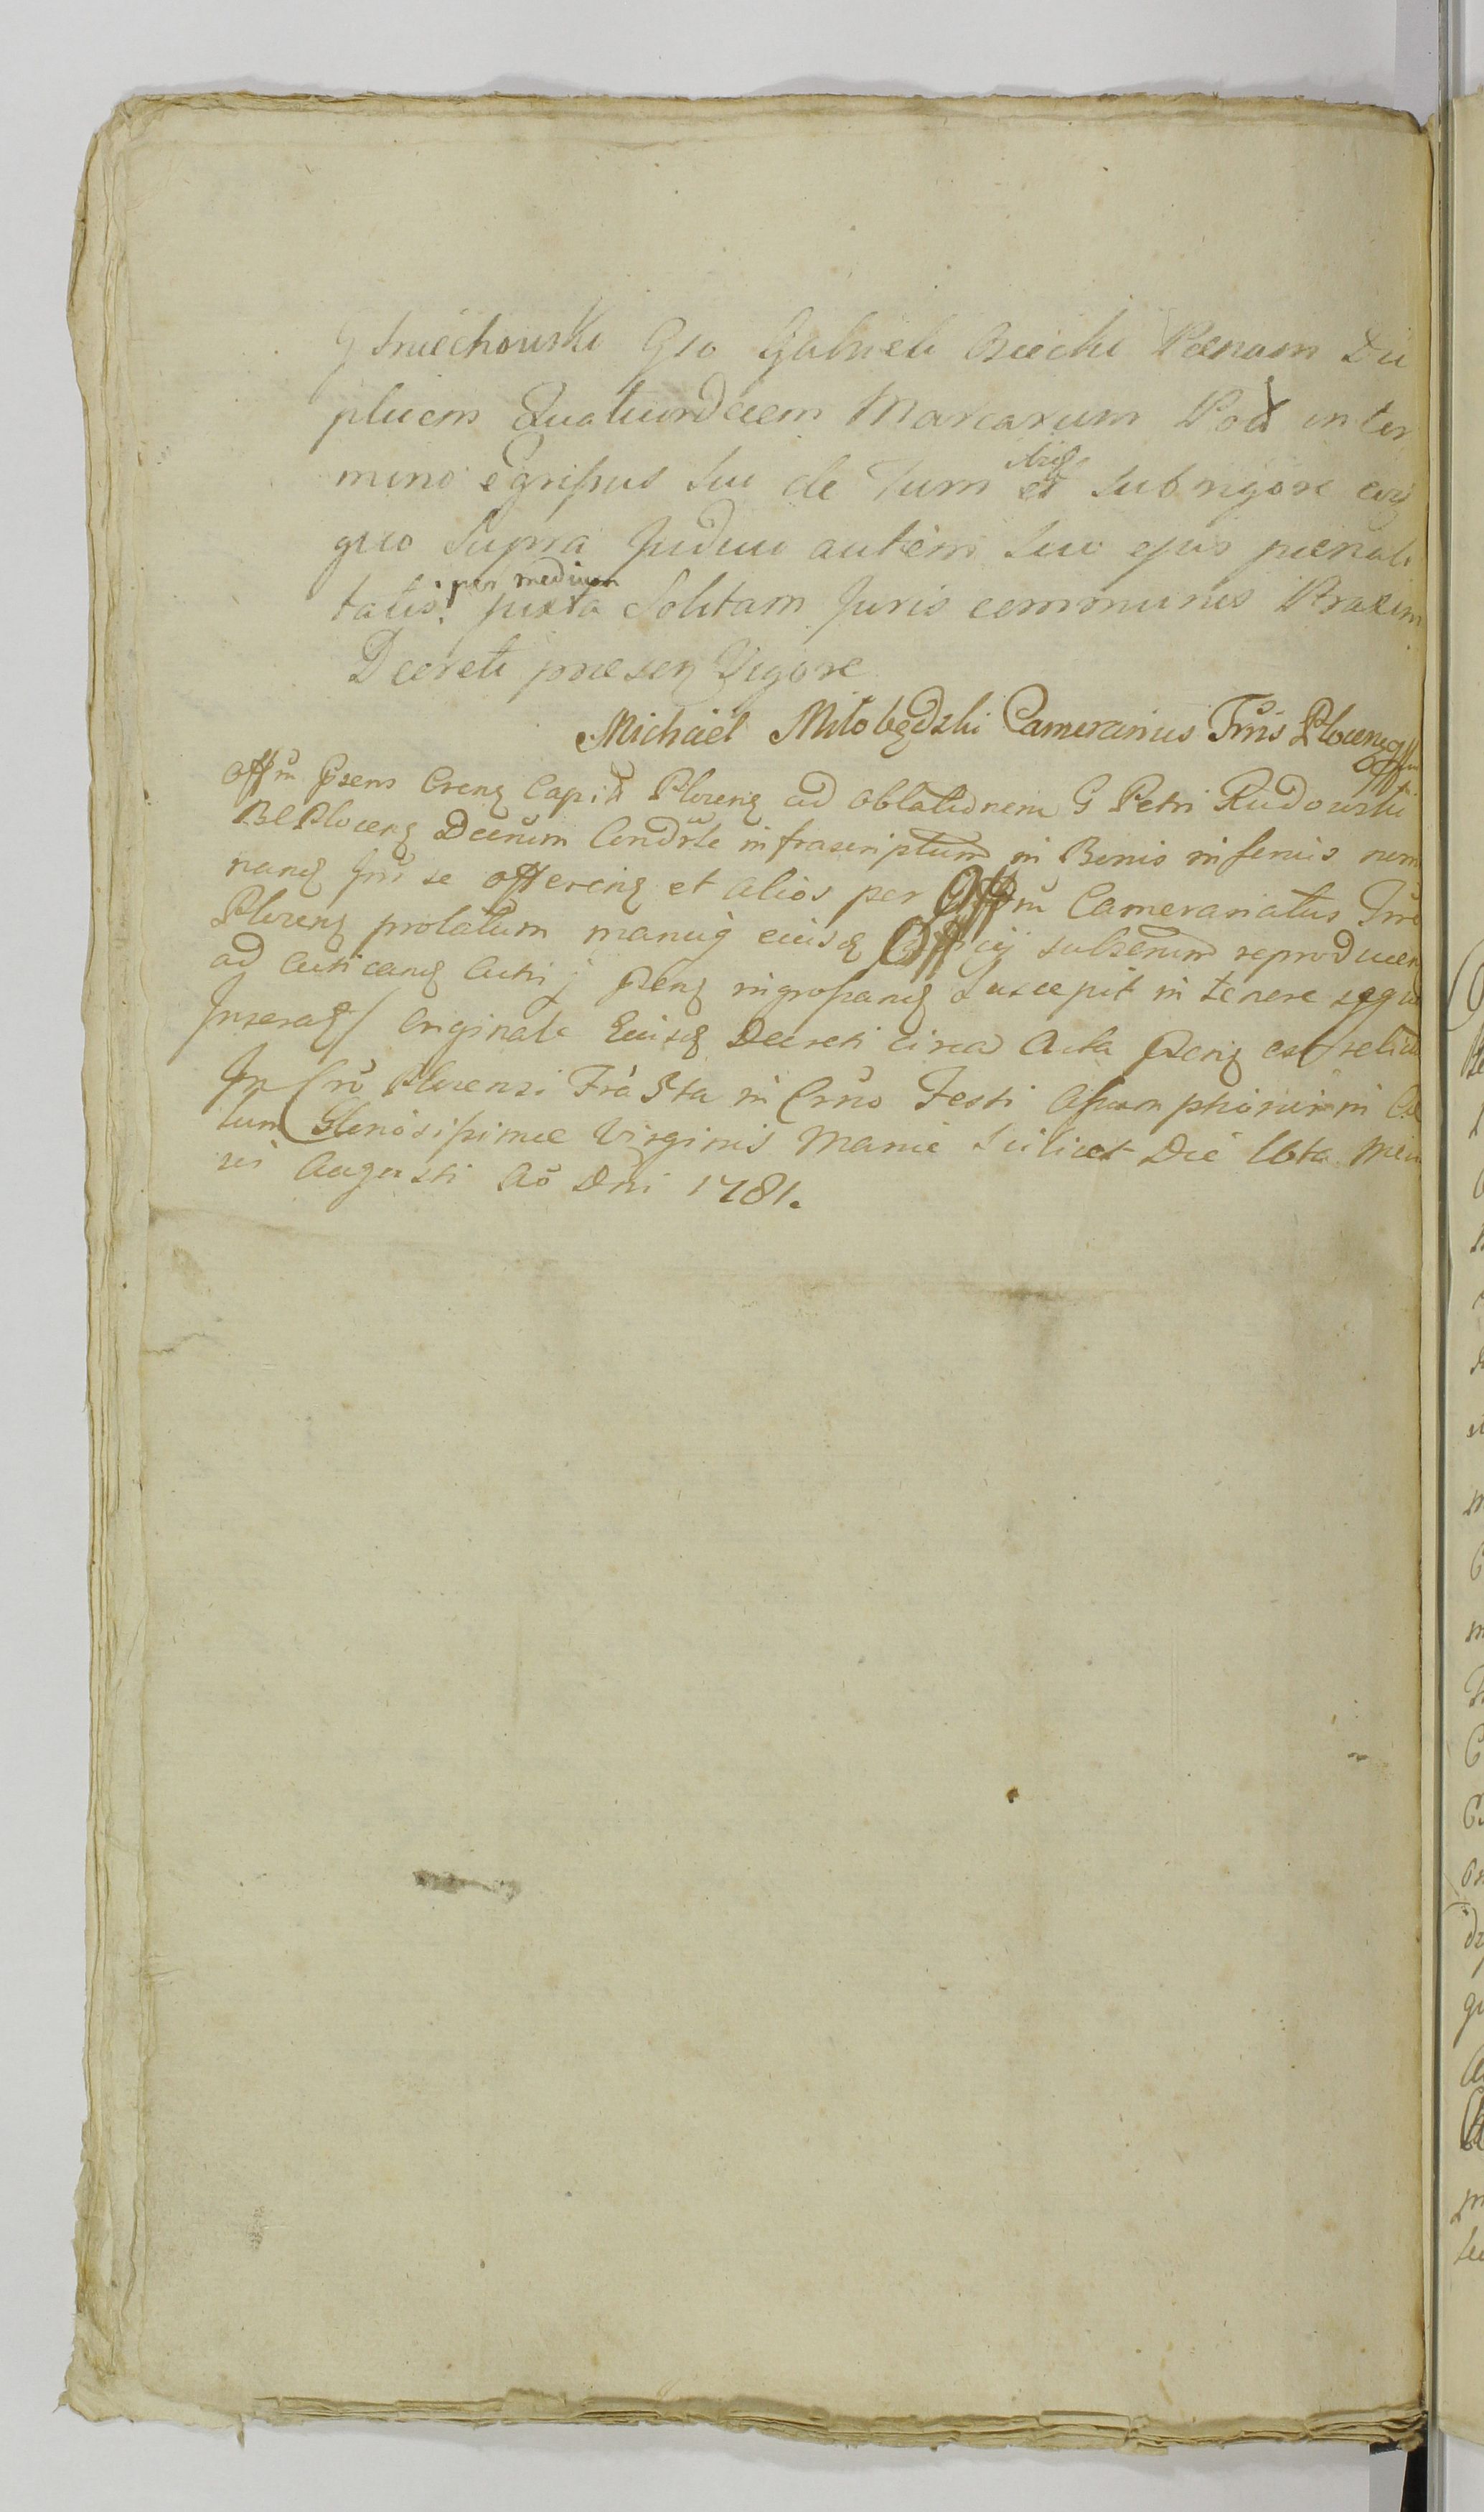 G Smiechowski Gso Gabrieli Biecki Paenam Du
plicem Quatuordecem Marcarum Pol in ter
mino egrissus sui de Turri et sub rigore
quo supra Judicii autem sui ejus paenali
tatis per medium juxta Solitam Juris communis Praxim
Decreti praesen Vigore
Michaël Miłobędzki Camerarius Trris Plocensis
Offm Psens Crens Capitt Plocens ad oblationem G Petri Rudowski
BC Plocens Decrum Condrle infrascriptum in Bonis inferius nomi
nans Juri se offerens et alios per Offm Camerariatus Trre
Plocens prolatum manuq eiusd Officij subscrum reproducen
ad acticand Actis Psens ingrossand suscepit in tenore sequ
Originale Eiusd Decreti circa Acta Psens est relict
In Cro Plocensi Fra 5ta in Crno Festi Assumptionis in Cae
lum Gloriosissimae Virginis Mariae scilicet Die 16ta Men
sis Augusti Ao Dni 1781.